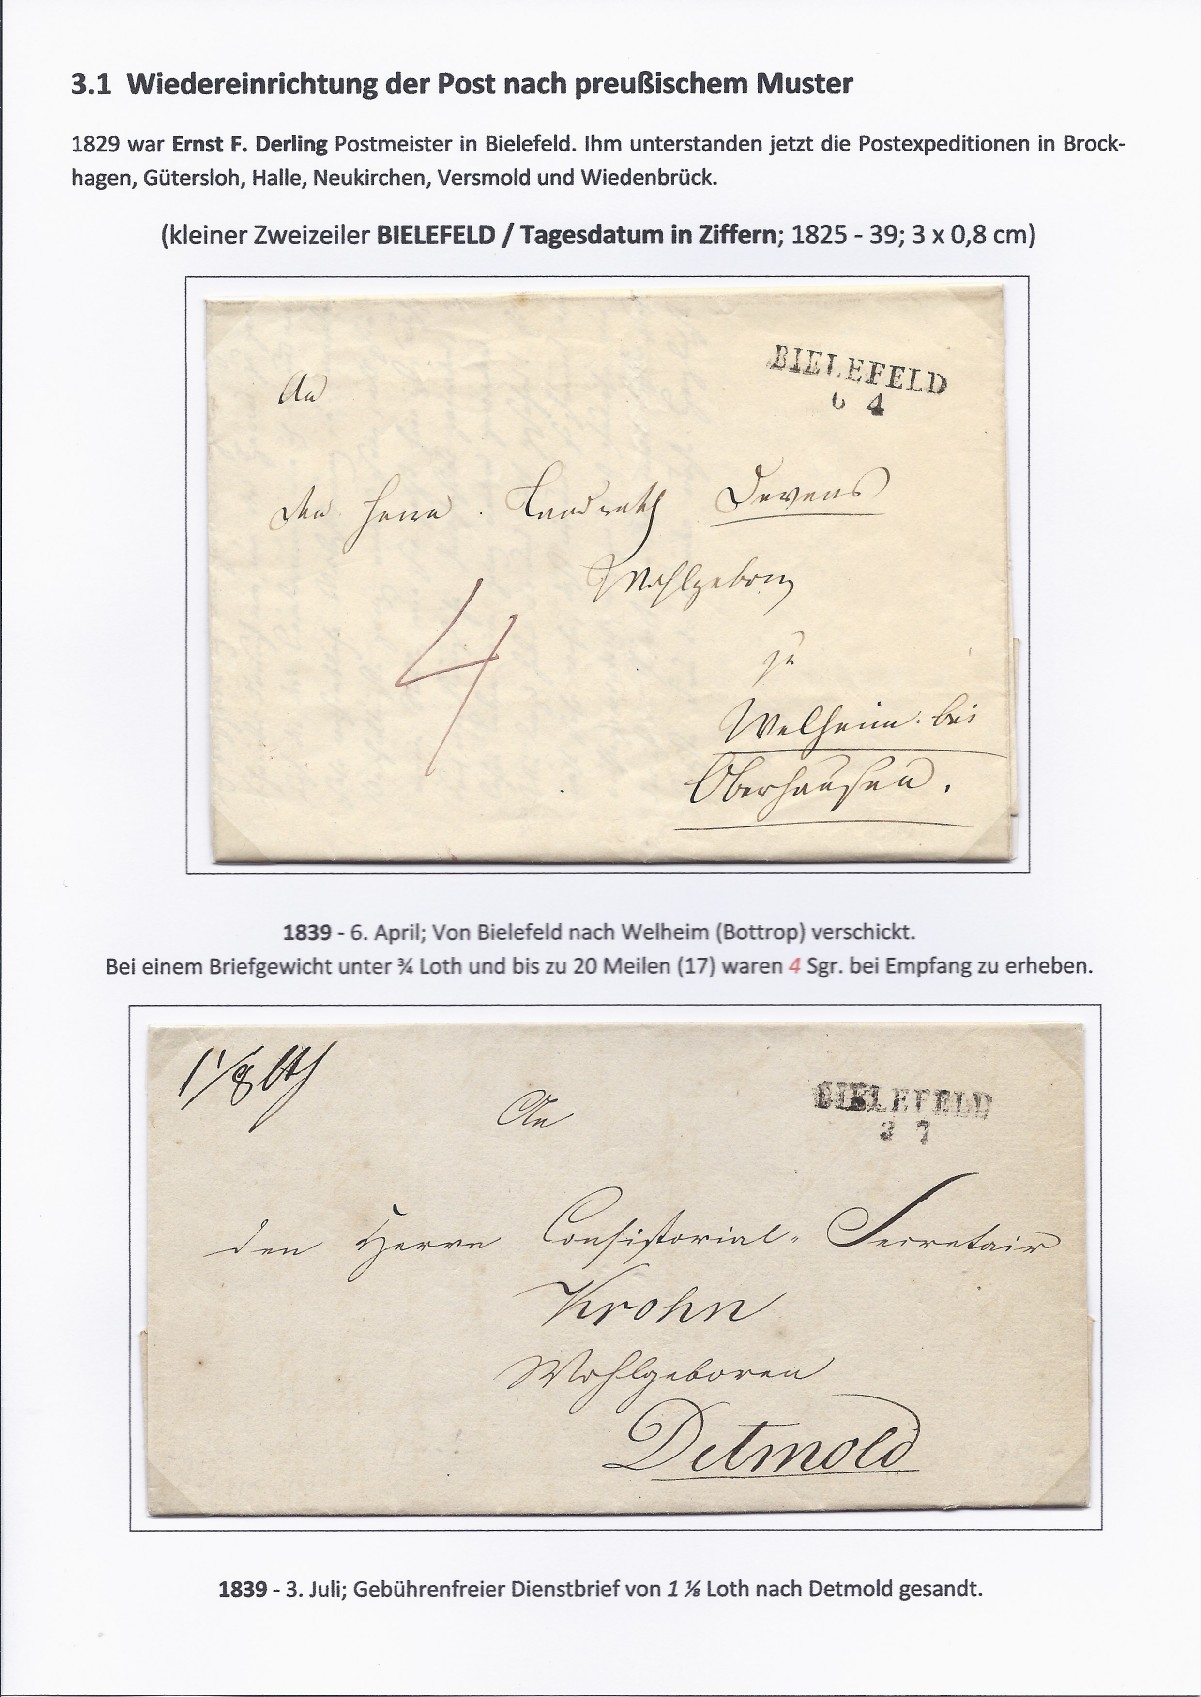 3.1 Wiedereinrichtung der Post nach preußischem Muster
1829 war Ernst F. Derling Postmeister in Bielefeld. Ihm unterstanden jetzt die Postexpeditionen in Brock-
hagen, Gütersloh, Halle, Neukirchen, Versmold und Wiedenbrück.
(kleiner Zweizeiler BIELEFELD / Tagesdatum in Ziffern; 1825 - 39; 3 x 0,8 cm)
BIELEFELD
6 4
An
den Herrn Landrath Devens
Wohlgeborn
zu
4
Welheim bei
Oberhausen.
1839 - 6. April; Von Bielefeld nach Welheim (Bottrop) verschickt.
Bei einem Briefgewicht unter ¾ Loth und bis zu 20 Meilen (17) waren 4 Sgr. bei Empfang zu erheben.
1 1/8 Lth
BIELEFELD
3 7
An
den Herrn Consistorial-Secretair
Krohn
Wohlgeboren
Detmold
1839 - 3. Juli; Gebührenfreier Dienstbrief von 1 ⅛ Loth nach Detmold gesandt.